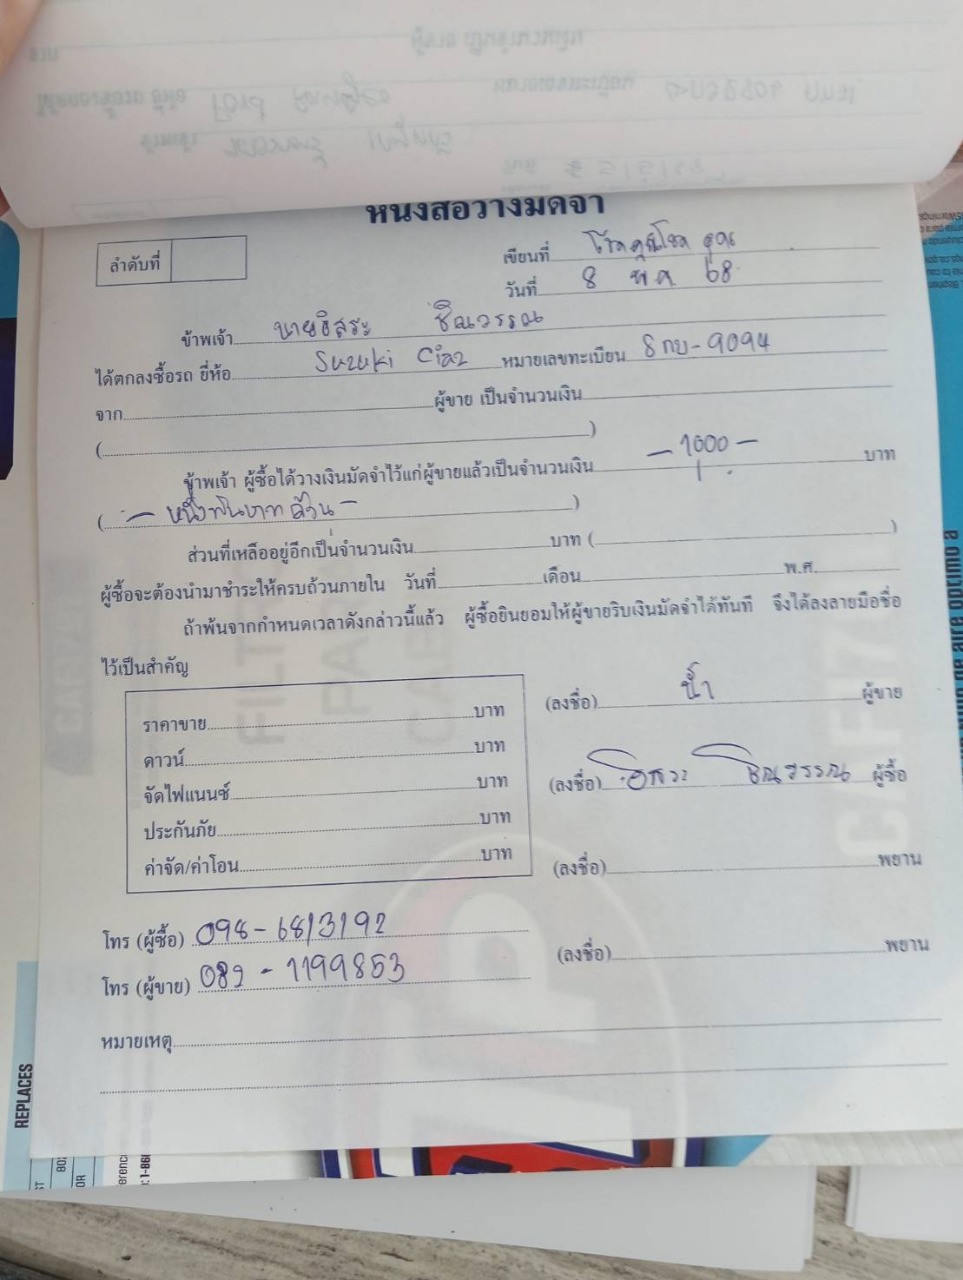 หนังสือวางมัดจำ
ลำดับที่
เขียนที่
วันที่ 8 พ.ค. 68
ข้าพเจ้า นายอิสระ ชิณวรรณ
ได้ตกลงซื้อรถ ยี่ห้อ Suzuki Ciaz หมายเลขทะเบียน 8กบ-9094
จาก ผู้ขาย เป็นจำนวนเงิน
( )
ข้าพเจ้า ผู้ซื้อได้วางเงินมัดจำไว้แก่ผู้ขายแล้วเป็นจำนวนเงิน - 1000 - บาท
( - หนึ่งพันบาทถ้วน - )
ส่วนที่เหลืออยู่อีกเป็นจำนวนเงิน บาท ( )
ผู้ซื้อจะต้องนำมาชำระให้ครบถ้วนภายใน วันที่ เดือน พ.ศ.
ถ้าพ้นจากกำหนดเวลาดังกล่าวนี้แล้ว ผู้ซื้อยินยอมให้ผู้ขายริบเงินมัดจำได้ทันที จึงได้ลงลายมือชื่อ
ไว้เป็นสำคัญ
ราคาขาย บาท
ดาวน์ บาท
จัดไฟแนนซ์ บาท
ประกันภัย บาท
ค่าจัด/ค่าโอน บาท
(ลงชื่อ) น้ำ ผู้ขาย
(ลงชื่อ) อิสระ ชิณวรรณ ผู้ซื้อ
(ลงชื่อ) พยาน
(ลงชื่อ) พยาน
โทร (ผู้ซื้อ) 098-6813192
โทร (ผู้ขาย) 082-1199853
หมายเหตุ
REPLACES